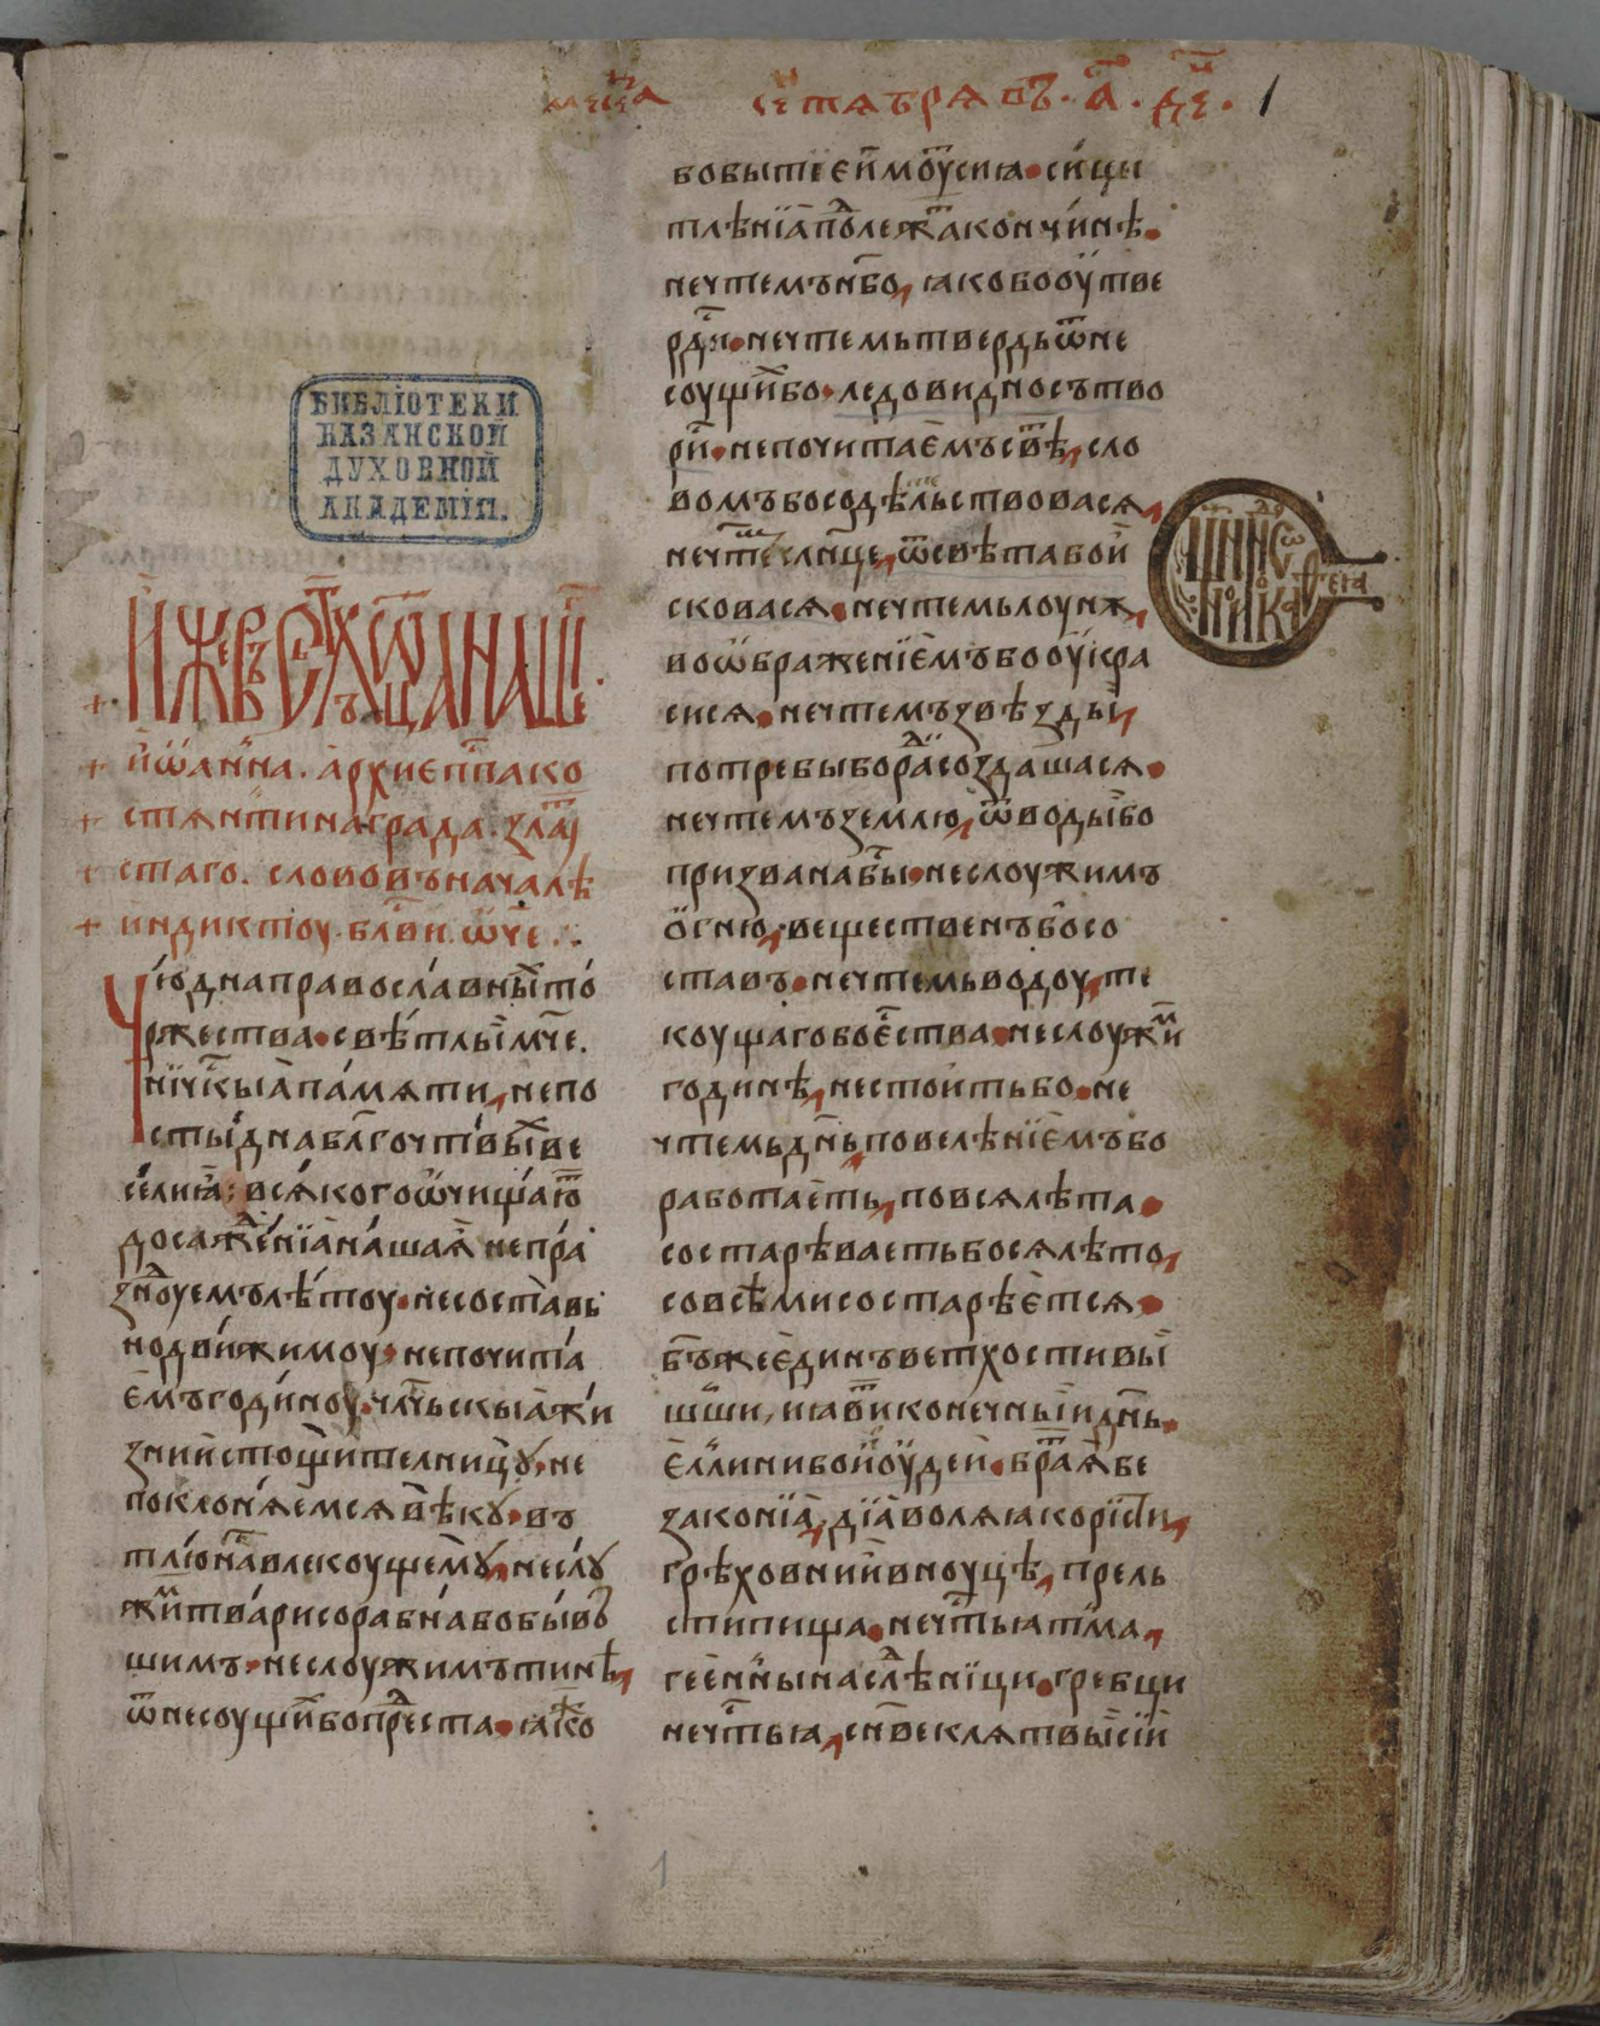 мⷭ҇ца сеⷩ҇тѧбрѧ въ · а҃ · дн҃ь · 1
БИБЛІОТЕКИ
КАЗАНСКОЙ
ДУХОВНОЙ
АКАДЕМІИ.
И҆же въ ст҃хъ ѿца наше
и҆ѡ҆анна. а҆рхиепⷭ҇па ко
стѧнтинаграда. злаⷮ
стаго. слово въ начѧлѣ
индиктоу. бл҃ви. ѿч҃е
Чюдна православныⷯ то
ржества • свѣтлы и҆ мч҃е.
ничⷭ҇кыа памѧти, непо
стыдна бл҃гочтⷭ҇выⷯ ве
селиа : всѧкого ѿчищаюⷮ
досажⷣенїа нашаѧ не пра
зⷣноуемъ лѣтоу • не составь
но движимоу • не почита
емъ годиноу • члч҃ьскыа жи
зни истощителницꙋ, не
поклонѧемсѧ вѣкꙋ • въ
тлю насⷭ҇ влекоущемꙋ, не слꙋ
жиⷨ твари сорабна бо бывъ
шимъ • не слоужимъ тинѣ,
ѿ не соущиⷯ бо преⷣста • ꙗкоⷤ
бо бытїе и҆ моⷮусиа • сицы
тлѣнїа поⷣлежⷮа кончинѣ •
не чтемъ нб҃о, ꙗко бо оутве
рⷣдисѧ • не чтемь твердь ѿ не
соущиⷯ бо • ледовидно сътво
риⷭ҇ • не почитаемъ свⷮѣ, сло
вомъ бо содѣльствовасѧ,
не чтеⷨ слн҃це, ѿ свѣта бо и
сковасѧ • не чтемь лоунѫ,
воѡбраженїемъ бо оукра
сисѧ • не чтемъ звѣзды,
потребы бо раⷣи создашасѧ •
не чтемъ землю, ѿ воды бо
призвана быⷭ҇ • не слоужимъ
огню, вещественъ бо со
ставъ • не чтемь водоу, те
коущаго бо еⷭ҇ства • не слоужиⷨ
годинѣ, не стоить бо • не
чтемь дн҃ь, повелѣнїемъ бо
работаеть, по всѧ лѣта •
состарѣваеть бо сѧ лѣто,
со всѣми состарѣетсѧ •
бг҃ъ же единъ ветхости вы
шши, и ꙗвⷮи конечныи дн҃ь •
еллини бо и҆ оудеи • браⷮаѧ бе
законїа, дїавола ꙗ користи,
грѣховнии вноуцѣ, прель
сти пища • нечⷭ҇тьꙗ тма,
геенны наслⷣѣници • гребци
нечⷭ҇тьꙗ, сн҃ве клѧтвы сїи